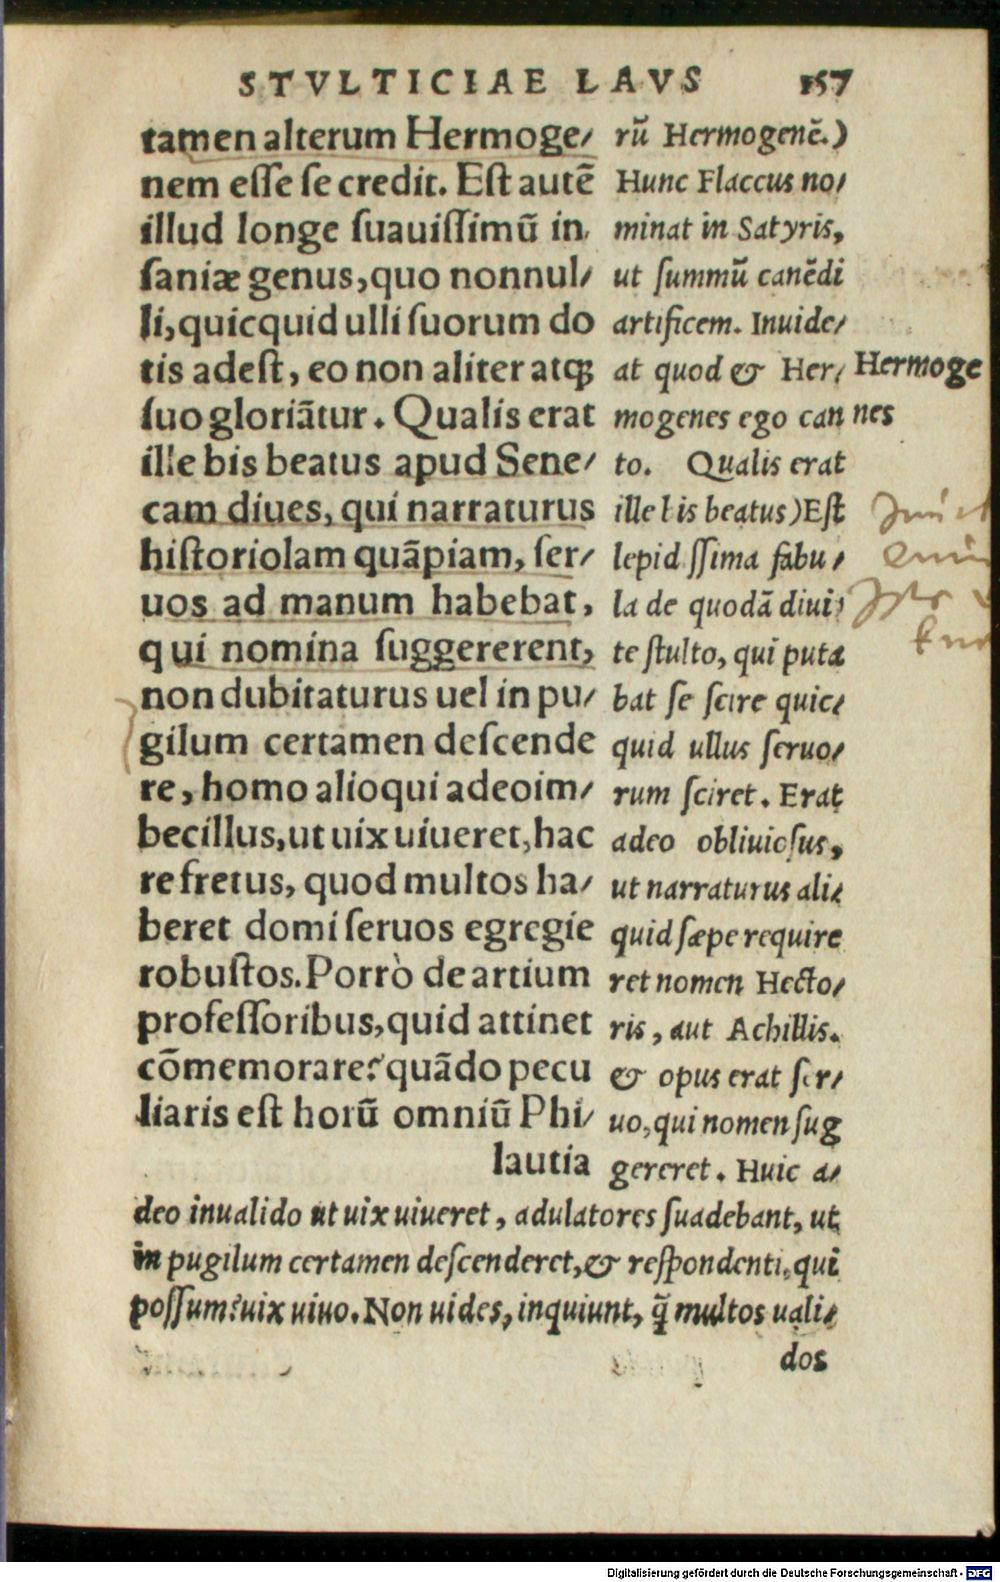 STVLTICIAE LAVS 157
tamen alterum Hermoge/
nem esse se credit. Est autē
illud longe suauissimū in
saniæ genus, quo nonnul/
li, quicquid ulli suorum do
tis adest, eo non aliter atq;
suo gloriātur. Qualis erat
ille bis beatus apud Sene/
cam diues, qui narraturus
historiolam quāpiam, ser/
uos ad manum habebat,
qui nomina suggererent,
non dubitaturus uel in pu/
gilum certamen descende
re, homo alioqui adeo im/
becillus, ut uix uiueret, hac
re fretus, quod multos ha/
beret domi seruos egregie
robustos. Porrò de artium
professoribus, quid attinet
cōmemorare? quādo pecu
liaris est horū omniū Phi/
lautia
rū Hermogenē.)
Hunc Flaccus no/
minat in Satyris,
ut summū canēdi
artificem. Inuide/
at quod & Her/
mogenes ego can
to. Qualis erat
ille bis beatus) Est
lepidissima fabu/
la de quodā diui/
te stulto, qui puta
bat se scire quic/
quid ullus seruo/
rum sciret. Erat
adeo obliuiosus,
ut narraturus ali/
quid sæpe require
ret nomen Hecto/
ris, aut Achillis.
& opus erat ser/
uo, qui nomen sug
gereret. Huic a/
deo inualido ut uix uiueret, adulatores suadebant, ut
in pugilum certamen descenderet, & respondenti, qui
possum? uix uiuo. Non uides, inquiunt, q̄ multos uali/
dos
Hermoge
nes
Digitalisierung gefördert durch die Deutsche Forschungsgemeinschaft - DFG